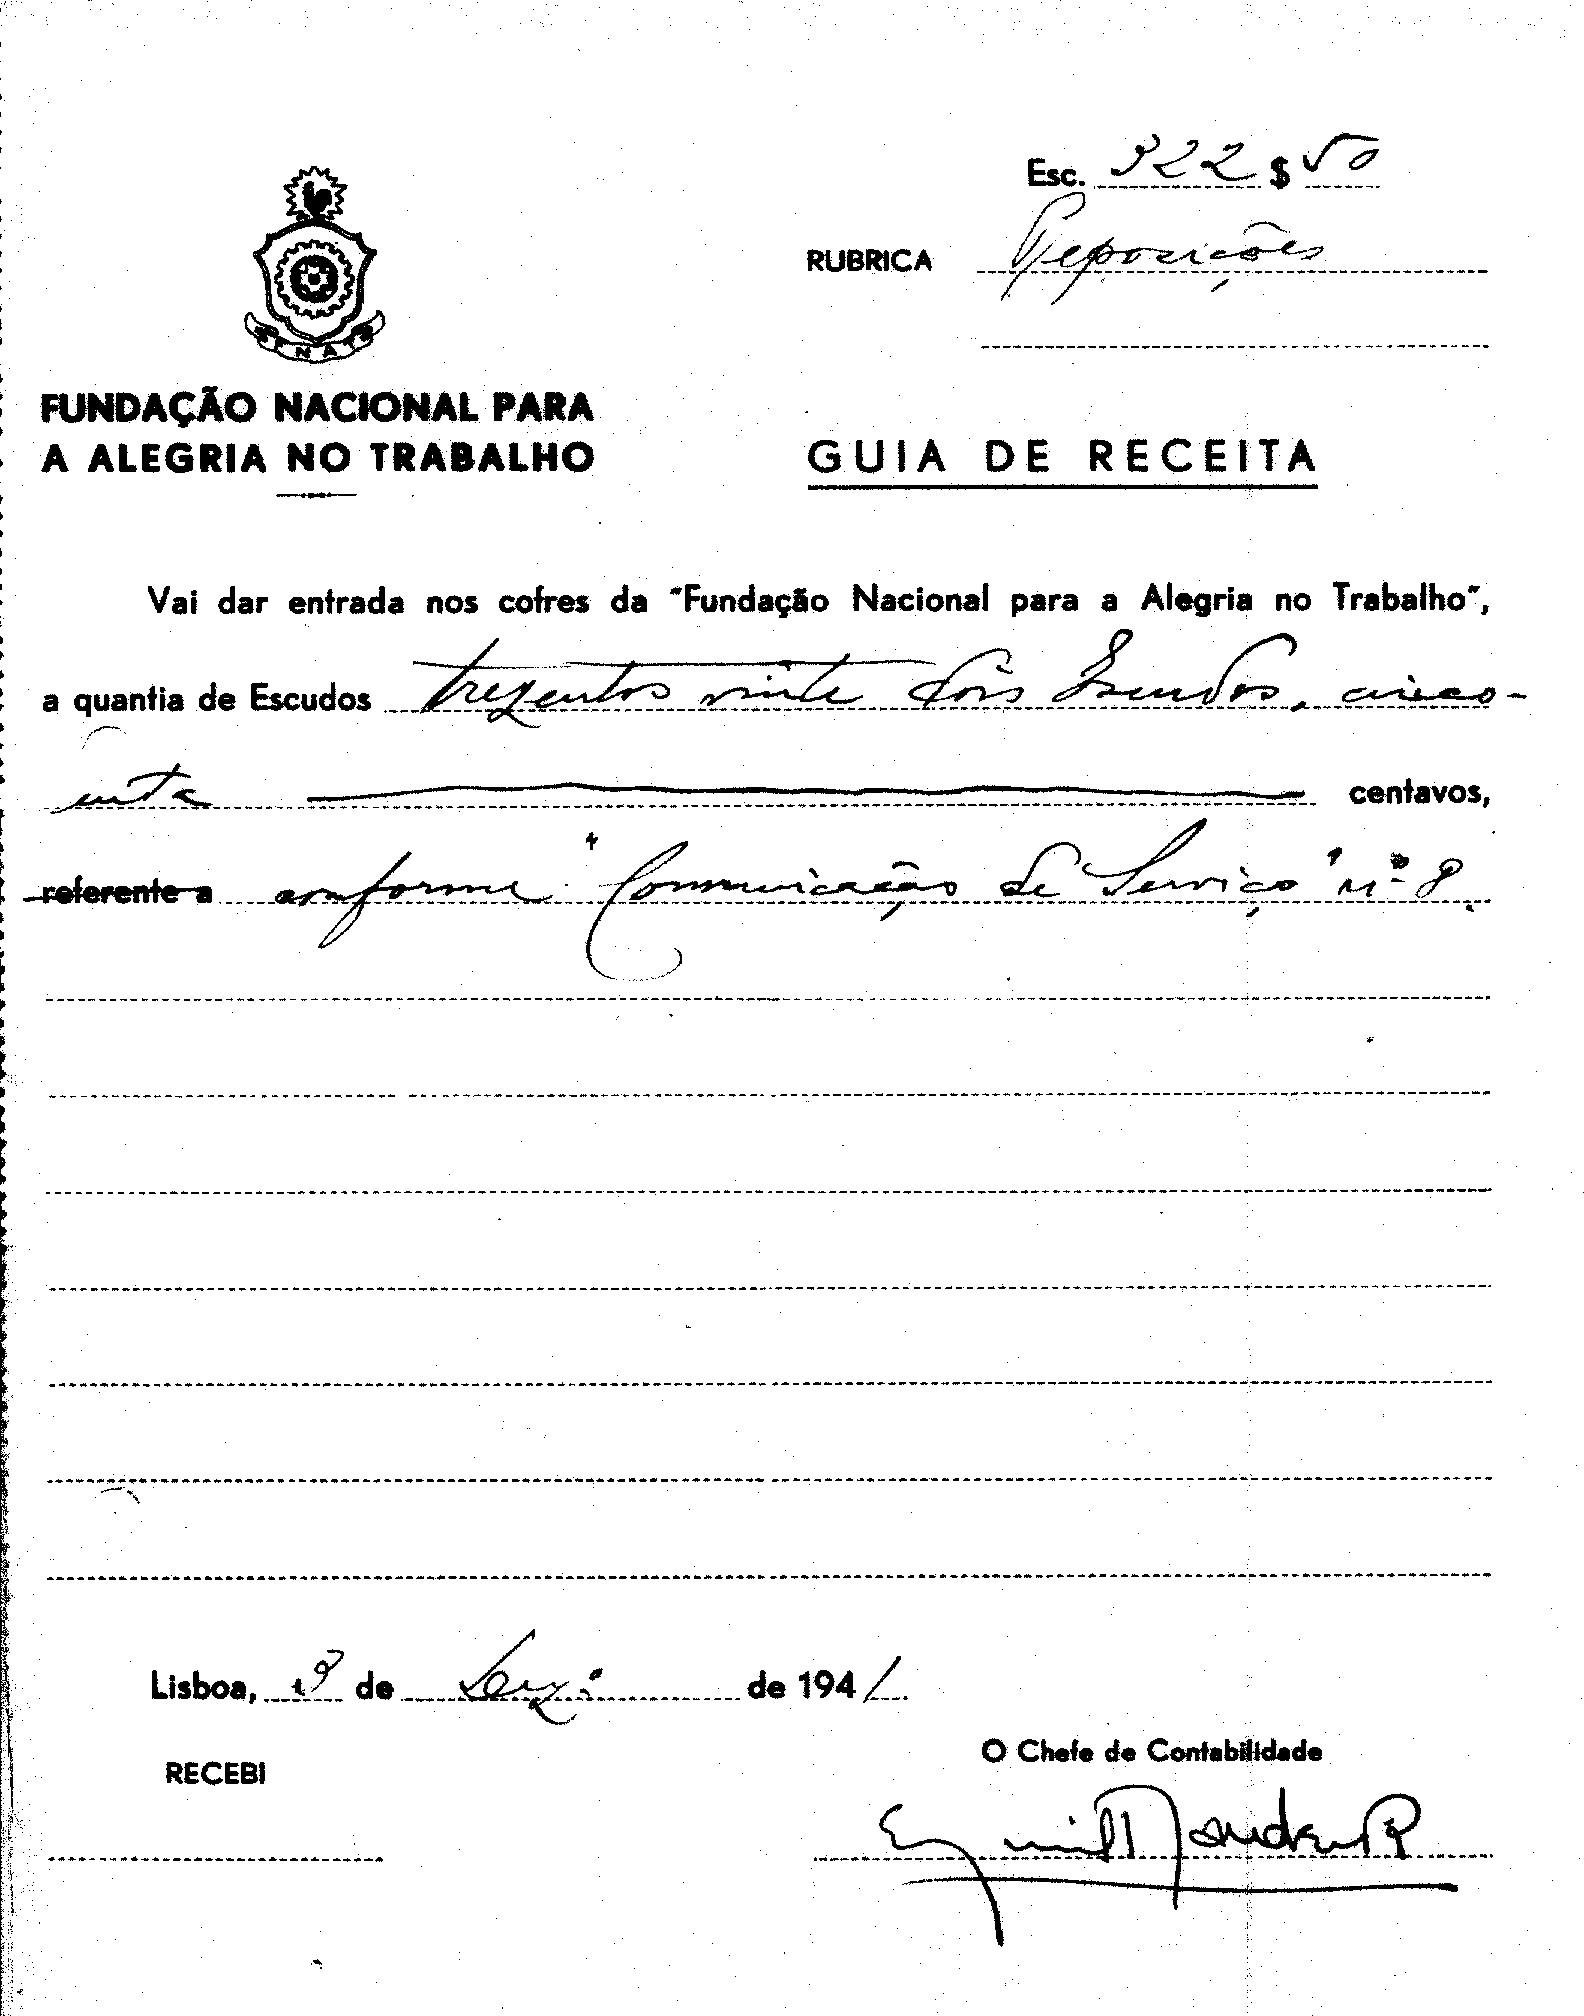 Esc. 322 $ 50
RUBRICA Reposições
F N A T
FUNDAÇÃO NACIONAL PARA
A ALEGRIA NO TRABALHO
GUIA DE RECEITA
Vai dar entrada nos cofres da "Fundação Nacional para a Alegria no Trabalho",
a quantia de Escudos trezentos vinte dois Escudos, cinco-
enta centavos,
referente a conforme "Comunicação de Serviço" nº 8.
Lisboa, 3 de de 1941
RECEBI
O Chefe de Contabilidade